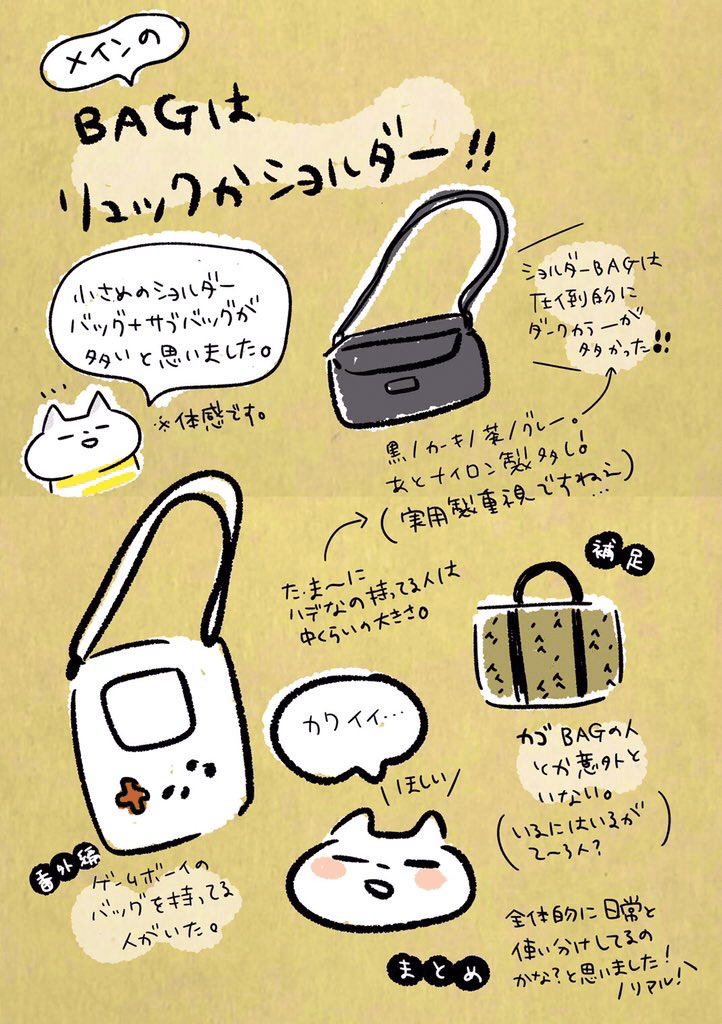 メインの
BAGは
リュックかショルダー!!
小さめのショルダー
バッグ+サブバッグが
多いと思いました。
※体感です。
ショルダーBAGは
圧倒的に
ダークカラーが
多かった!!
黒/カーキ/茶/グレー。
あとナイロン製多し!
(実用製重視ですねぇ…)
た.ま〜に
ハデなの持ってる人は
中くらいの大きさ。
補足
カゴBAGの人
とか意外と
いない。
(いるにはいるが
2〜3人?)
カワイイ…
\ほしい/
番外編
ゲームボーイの
バッグを持ってる
人がいた。
まとめ
全体的に日常と
使い分けしてるの
かな?と思いました!
/リアル!\